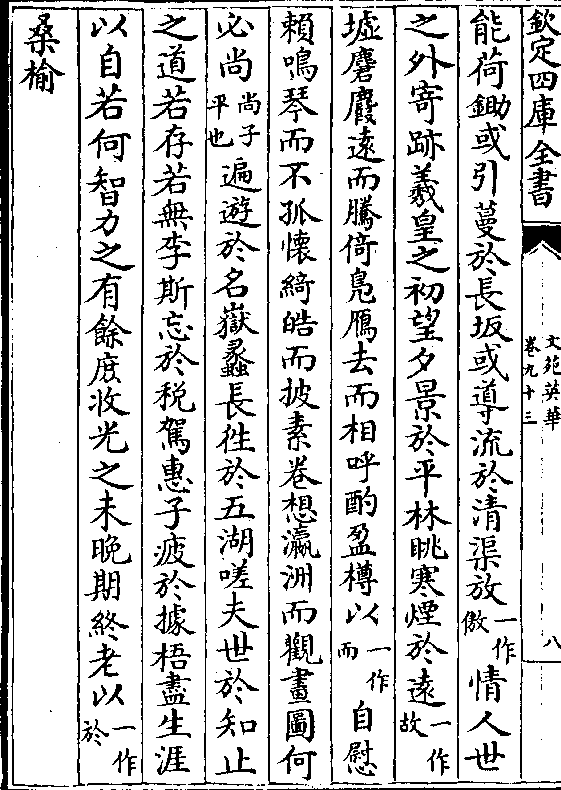 欽定四庫全書
文苑英華
卷九十三
八
能荷鋤或引蔓於長坂或導流於清渠放一作傲情人世
之外寄跡羲皇之初望夕景於平林眺寒煙於遠一作故
墟麏麚遠而騰倚鳧鴈去而相呼酌盈樽以一作而自慰
賴鳴琴而不孤懷綺皓而披素卷想瀛洲而觀畫圖何
必尚尚子平也遍遊於名嶽蠡長徃於五湖嗟夫世於知止
之道若存若無李斯忘於税駕惠子疲於據梧盡生涯
以自若何智力之有餘庻收光之未晚期終老以一作於
桑榆